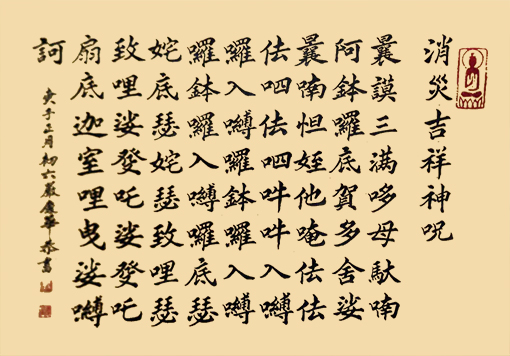 消災吉祥神呪
曩謨三滿哆母馱喃
阿鉢囉底賀多舍娑
曩喃怛姪他唵佉佉
佉呬佉呬吽吽入嚩
囉入嚩囉鉢囉入嚩
囉鉢囉入嚩囉底瑟
姹底瑟姹瑟致哩瑟
致哩娑癹吒娑癹吒
扇底迦室哩曳娑嚩
訶
庚子正月初六嚴慶華恭書